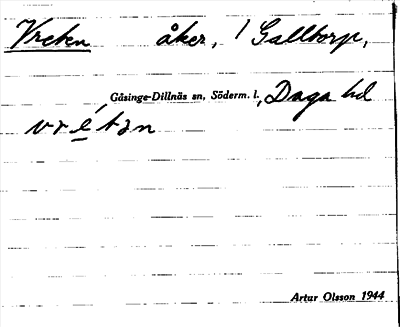 Vreten åker, / Galltorp,
Gåsinge-Dillnäs sn, Söderm. l., Daga hd
vrétən
Artur Olsson 1944